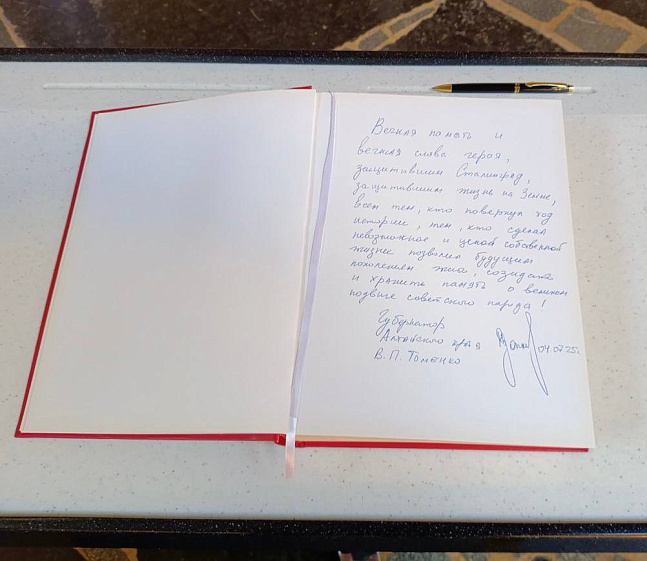 Вечная память и
вечная слава героя,
защитившим Сталинград,
защитившим жизнь на Земле,
всем тем, кто повернул ход
истории, тем, кто сделал
невозможное и ценой собственной
жизни позволил будущим
поколениям жить, созидать
и хранить память о великом
подвиге советского народа!
Губернатор
Алтайского края
В. П. Томенко
04.07.25г.